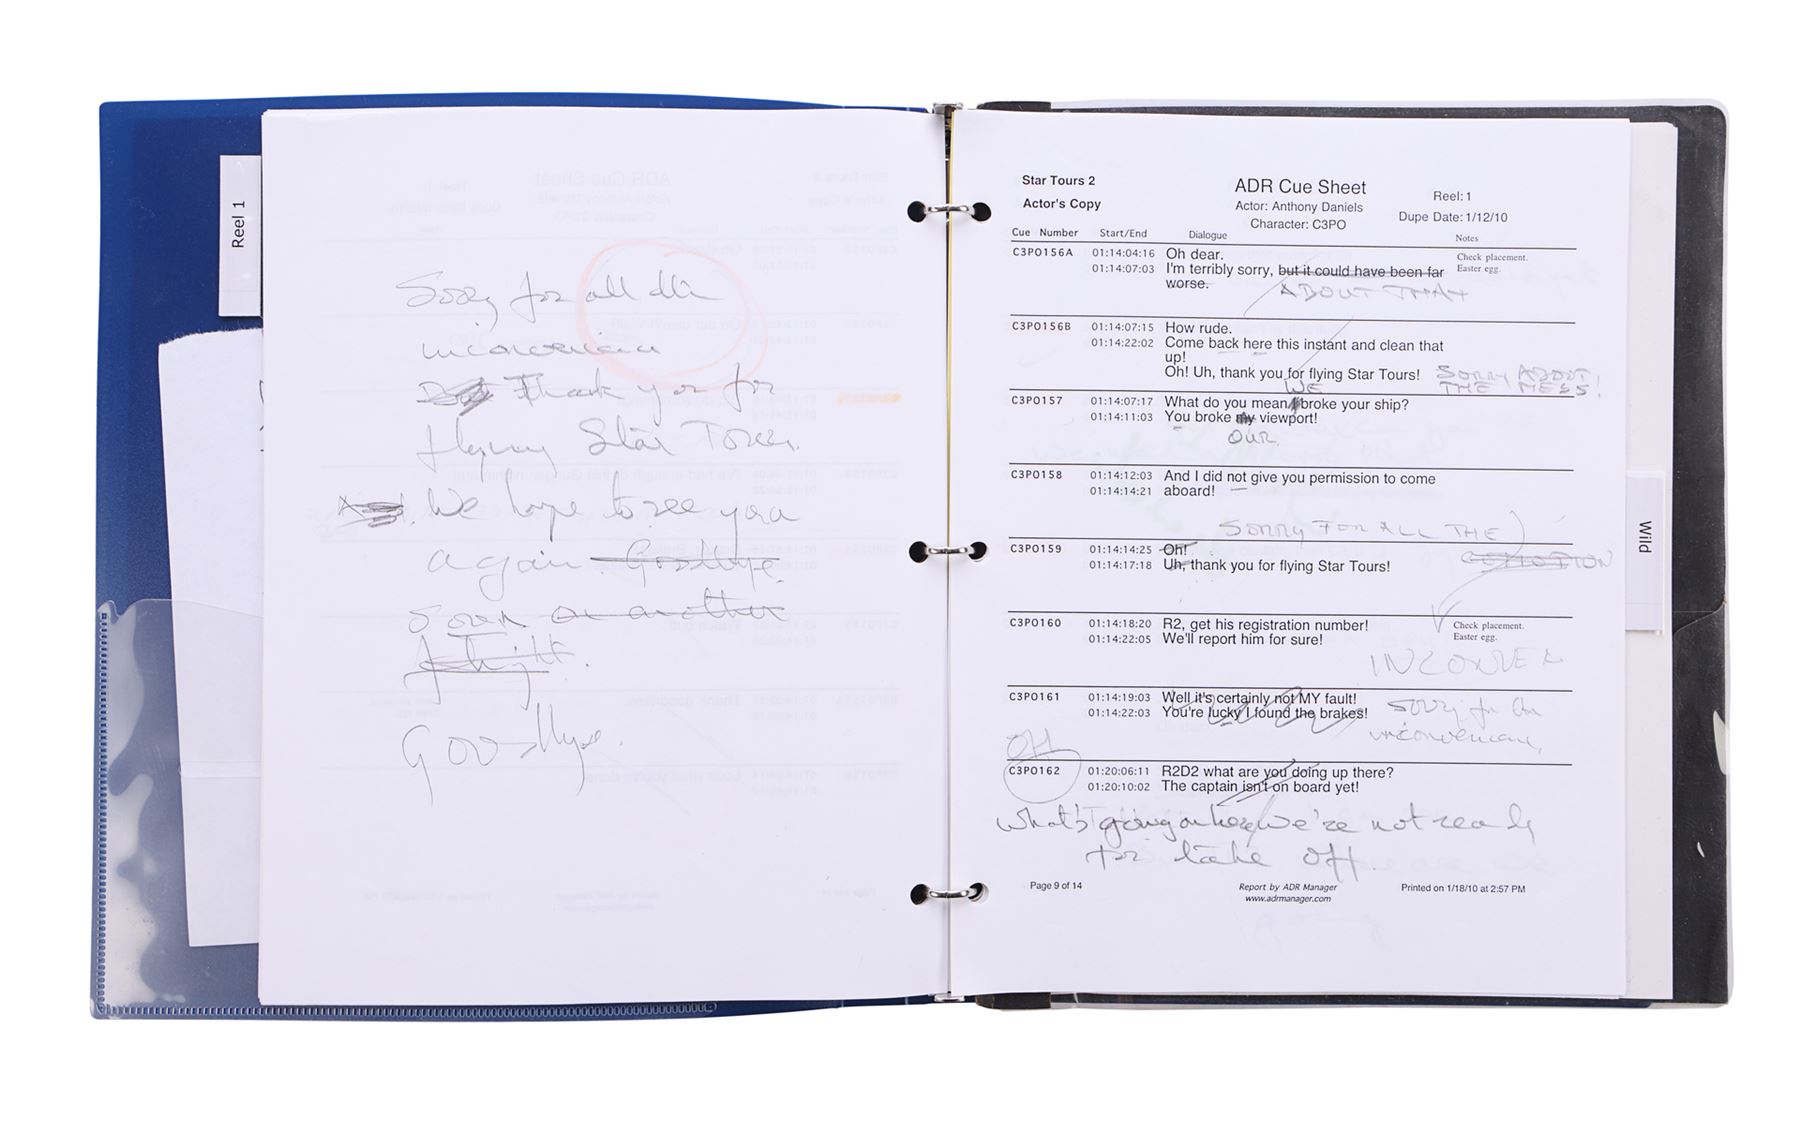 Reel 1
Sorry for all the
inconvenience
Thank you for
flying Star Tours.
And We hope to see you
again. Goodbye.
soon or another
flight.
Goodbye.
Star Tours 2
Actor's Copy
ADR Cue Sheet
Actor: Anthony Daniels
Character: C3PO
Reel: 1
Dupe Date: 1/12/10
Cue Number Start/End Dialogue Notes
C3PO156A 01:14:04:16 Oh dear. Check placement.
01:14:07:03 I'm terribly sorry, but it could have been far Easter egg.
worse. ABOUT THAT
C3PO156B 01:14:07:15 How rude.
01:14:22:02 Come back here this instant and clean that
up!
Oh! Uh, thank you for flying Star Tours! SORRY ABOUT
WE THE MESS!
C3PO157 01:14:07:17 What do you mean I broke your ship?
01:14:11:03 You broke my viewport!
OUR
C3PO158 01:14:12:03 And I did not give you permission to come
01:14:14:21 aboard!
SORRY FOR ALL THE
C3PO159 01:14:14:25 Oh!
01:14:17:18 Uh, thank you for flying Star Tours!
C3PO160 01:14:18:20 R2, get his registration number! Check placement.
01:14:22:05 We'll report him for sure! Easter egg.
INCONVEN
C3PO161 01:14:19:03 Well it's certainly not MY fault!
01:14:22:03 You're lucky I found the brakes! Sorry for the
inconvenience,
OH
C3PO162 01:20:06:11 R2D2 what are you doing up there?
01:20:10:02 The captain isn't on board yet!
What's going on here we're not ready
for take off.
Page 9 of 14
Report by ADR Manager
www.adrmanager.com
Printed on 1/18/10 at 2:57 PM
Wild